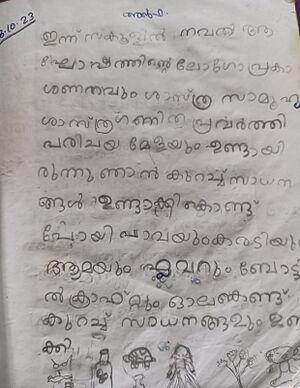 8.10.23
ഇന്ന് സ്കൂളിൽ നവതി ആ
ഘോഷത്തിന്റെ ലോഗോ പ്രകാ
ശനവും ശാസ്ത്ര സാമൂഹ്യ
ശാസ്ത്ര ഗണിത പ്രവർത്തി
പരിചയ മേളയും ഉണ്ടായി
രുന്നു ഞാൻ കുറച്ച് സാധന
ങ്ങൾ ഉണ്ടാക്കി കൊണ്ടു
പോയി പാവയും കരടിയും
ആമയും ഫ്ലവറും ബോട്ടി
ൽ ക്രാഫ്റ്റും ഓലകൊണ്ട്
കുറച്ച് സാധനങ്ങളും ഉണ്ടാ
ക്കി